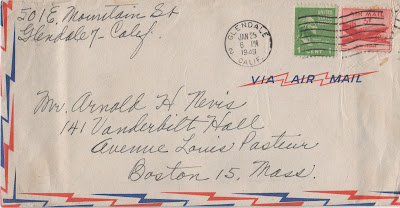 501 E. Mountain St
Glendale 7 - Calif.
GLENDALE
2
JAN 25
6 PM
1949
CALIF.
1 CENT
AIR MAIL
VIA AIR MAIL
Mr. Arnold H Nevis
141 Vanderbilt Hall
Avenue Louis Pasteur
Boston 15, Mass.